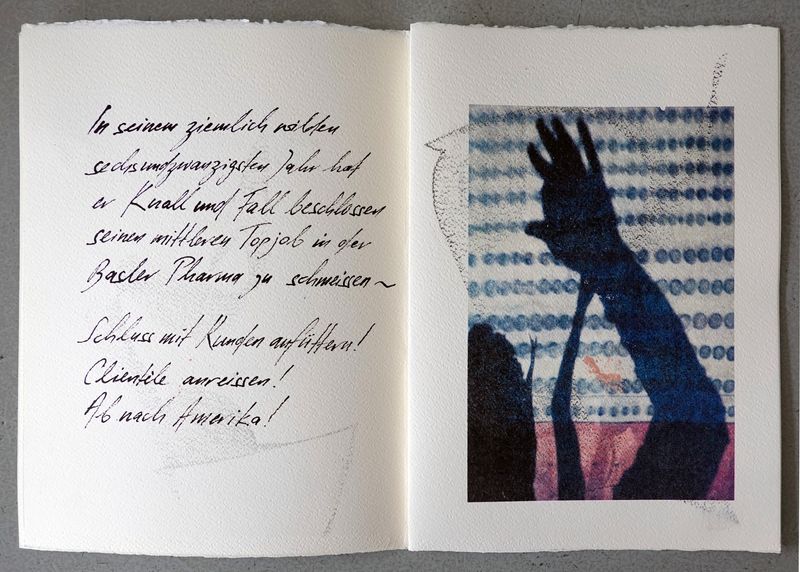 In seinem ziemlich wilden
sechsundzwanzigsten Jahr hat
er Knall und Fall beschlossen
seinen mittleren Topjob in der
Basler Pharma zu schmeissen~
Schluss mit Kunden anfüttern!
Clientèle anreissen!
Ab nach Amerika!